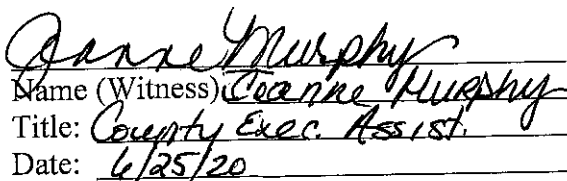 Jeanne Murphy
Name (Witness) Jeanne Murphy
Title: County Exec. Assist.
Date: 6/25/20